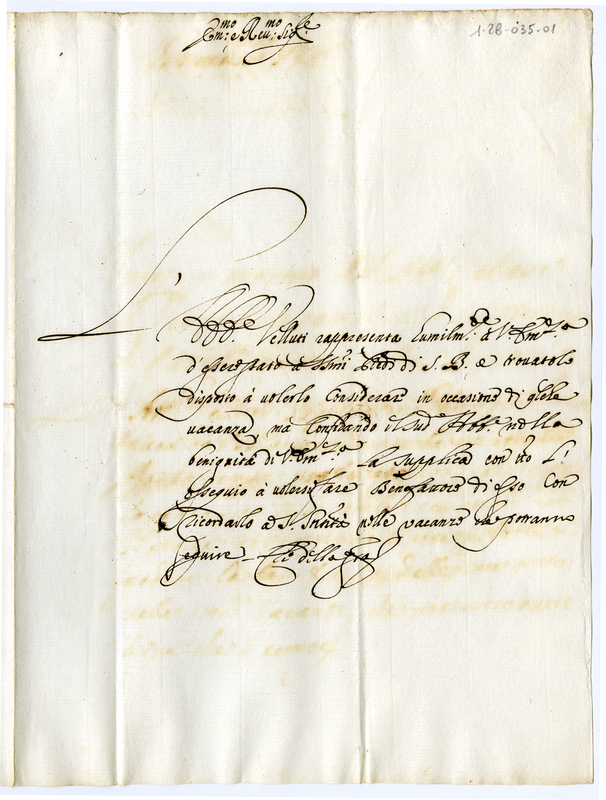 Em:mo e Reu:mo Sig:re
1-28-035-01
L'
Abb:e Velluti rappresenta humilm:te à V: Em:za
d'essere stato a S.smi Piedi di S. B. e trovatolo
disposto à volerlo Considerare in occasione di q.lche
vacanza, ma Confidando il sud.o Abb:e nella
benignità di V: Em:za La supplica con ogni L'
ossequio à volersi fare di esso Con
Ricordarlo a S. Santità nelle vacanze che potranno
seguire - Che della gra